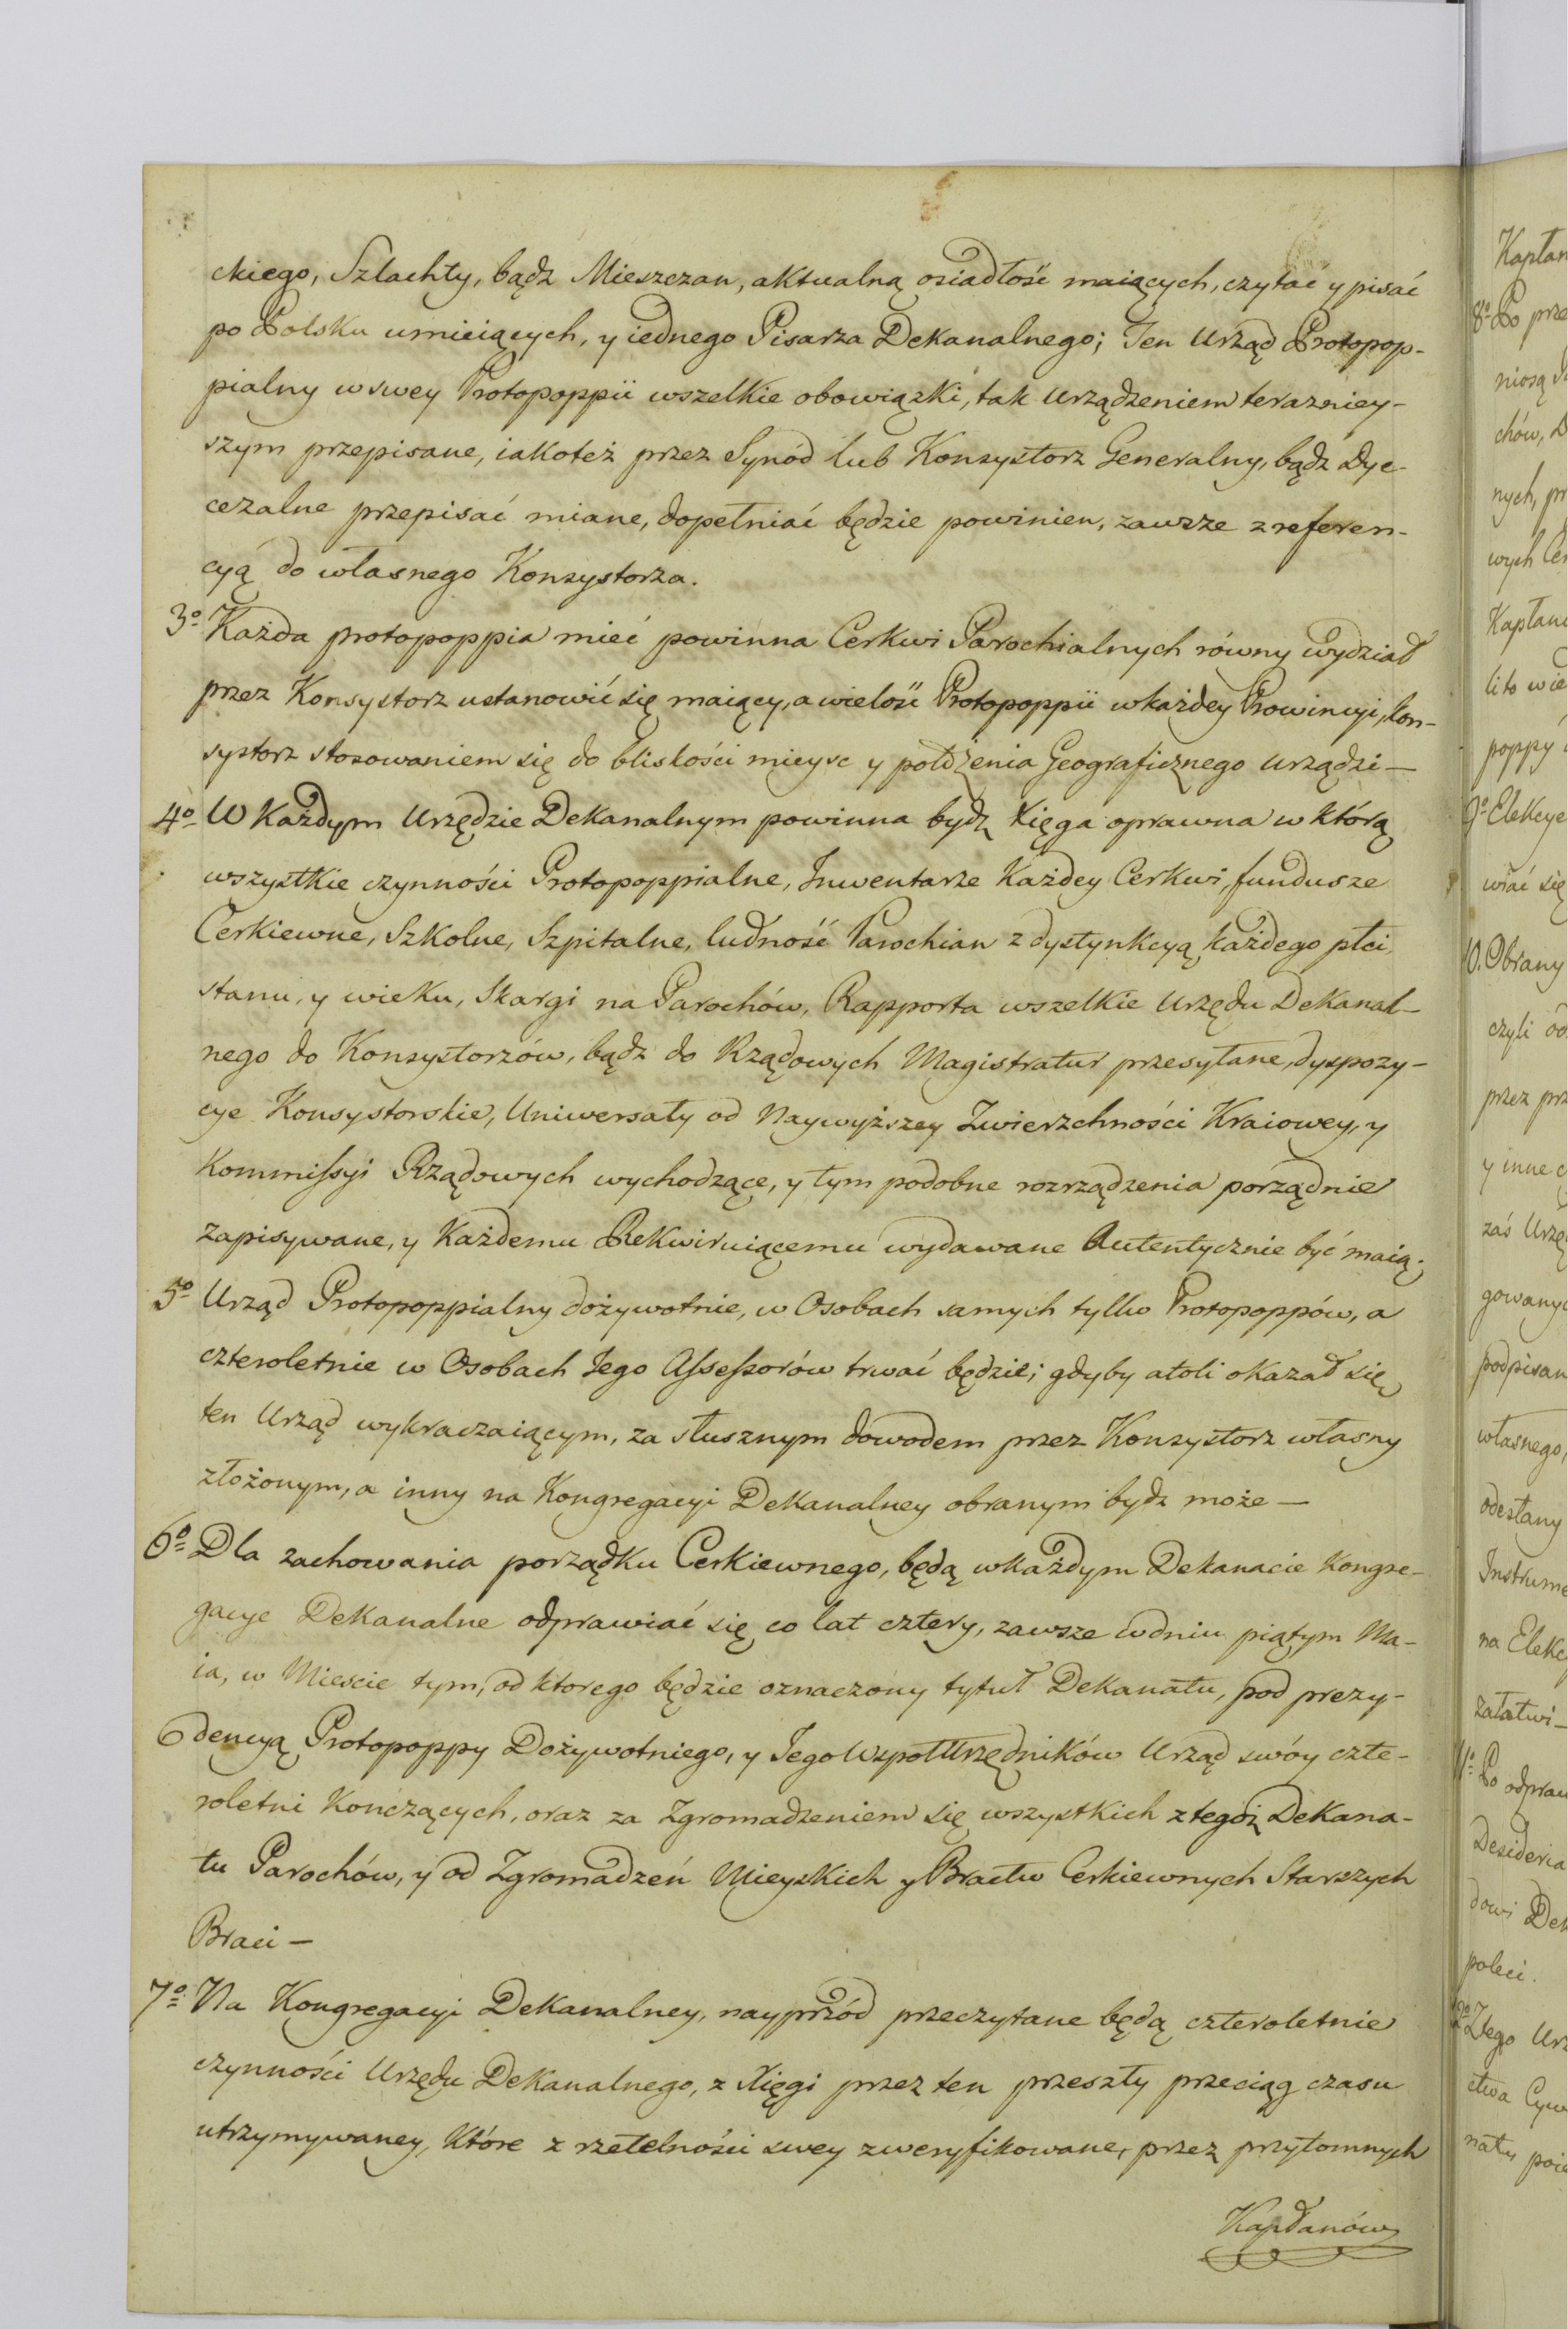 ckiego, Szlachty, bądz Mieszczan, aktualną osiadłość maiących, czytać y pisać
po Polsku umieiących, y iednego Pisarza Dekanalnego; Ten Urząd Protopop-
pialny w swey Protopoppii wszelkie obowiązki, tak Urządzeniem terazniey-
szym przepisane, iakoteż przez Synod lub Konsystorz Generalny, bądz Dye-
cezalne przepisać miane, dopełniać będzie powinien, zawsze z referen-
cyą do własnego Konsystorza.
3º Każda protopoppia mieć powinna Cerkwi Parochialnych równy wydział
przez Konsystorz ustanowić się maiący, a wielość Protopoppii w każdey Prowincyi, Kon-
systorz stosowaniem się do bliskości mieysc y położenia Geograficznego urządzi —
4º W Każdym Urzędzie Dekanalnym powinna bydz Xięga oprawna w którą
wszystkie czynności Protopoppialne, Inwentarze Każdey Cerkwi, fundusze
Cerkiewne, Szkolne, Szpitalne, ludność Parochian z dystynkcyą każdego płci,
stanu, y wieku, Skargi na Parochów, Rapporta wszelkie Urzędu Dekanal-
nego do Konsystorzów, bądz do Rządowych Magistratur przesyłane, dyspozy-
cye Konsystorskie, Uniwersały od Naywyższey Zwierzchności Kraiowey, y
Kommissyi Rządowych wychodzące, y tym podobne rozrządzenia porządnie
zapisywane, y Każdemu Rekwiruiącemu wydawane Autentycznie być maią.
5º Urząd Protopoppialny dożywotnie, w Osobach samych tylko Protopoppów, a
czteroletnie w Osobach Jego Assessorów trwać będzie; gdyby atoli okazał się
ten Urząd wykraczaiącym, za słusznym dowodem przez Konsystorz własny
złożonym, a inny na Kongregacyi Dekanalney obranym bydz może —
6º Dla zachowania porządku Cerkiewnego, będą w każdym Dekanacie Kongre-
gacye Dekanalne odprawiać się co lat cztery, zawsze w dniu piątym Ma-
ia, w Miescie tym, od ktorego będzie oznaczony tytuł Dekanatu, pod prezy-
dencyą Protopoppy Dożywotniego, y Jego WspołUrzędników Urząd swóy czte-
roletni Kończących, oraz za Zgromadzeniem się wszystkich z tegoż Dekana-
tu Parochów, y od Zgromadzeń Mieyskich y Bractw Cerkiewnych Starszych
Braci —
7º Na Kongregacyi Dekanalney, nayprzód przeczytane będą czteroletnie
czynności Urzędu Dekanalnego, z Xięgi przez ten przeszły przeciąg czasu
utrzymywaney, Które z rzetelności swey zweryfikowane, przez przytomnych
Kapłanów
Kapłan
8º Po prze
niosą
chów, D
nych, pr
wych Cer
Kapłan
li to wie
poppy
9º Elekcye
wiać się
10. Obrany
czyli od
przez prz
y inne c
zaś Urzę
gowany
podpisan
własnego,
odesłany
Instrume
na Elekc
załatwi —
11º Po odpraw
Desideria
dowi Dek
poleci.
Z tego Urz
ctwa Cyw
naty poie